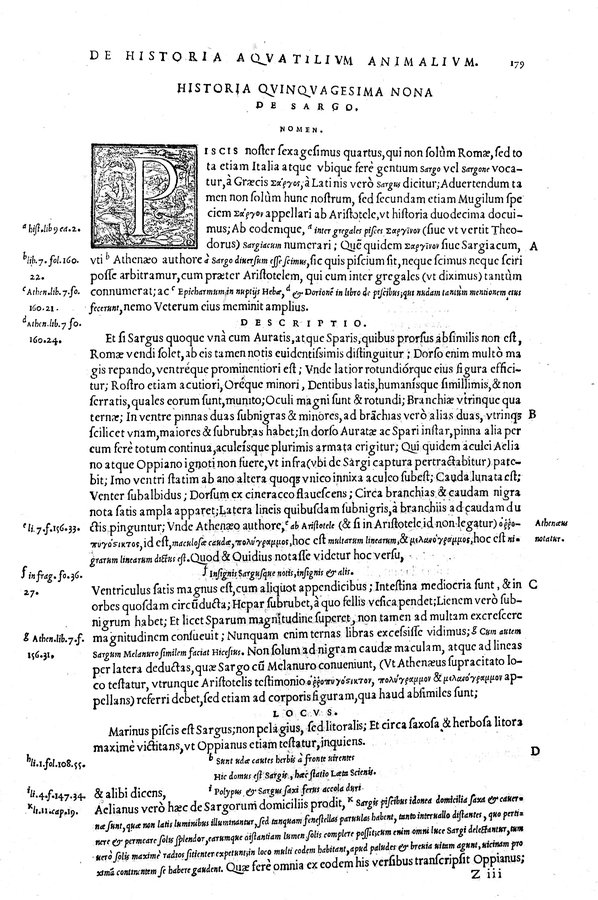 DE HISTORIA AQVATILIVM ANIMALIVM. 179
HISTORIA QVINQVAGESIMA NONA
DE SARGO.
NOMEN.
PISCIS noster sexagesimus quartus, qui non solùm Romæ, sed to
ta etiam Italia atque vbique ferè gentium Sargo vel Sargone voca-
tur, à Græcis Σάργος, à Latinis verò Sargus dicitur; Aduertendum ta
men non solùm hunc nostrum, sed secundam etiam Mugilum spe
ciem Σάργον appellari ab Aristotele, vt historia duodecima docui-
a hist. lib 9 ca. 2.
mus; Ab eodemque, a inter gregales pisces Σαργῖνον (siue vt vertit Theo-
dorus) Sargiacum numerari; Quē quidem Σαργῖνον siue Sargiacum, A
b lib. 7. fol. 160. 22.
vti b Athenæo authore à Sargo diuersum esse scimus, sic quis piscium sit, neque scimus neque sciri
posse arbitramur, cum præter Aristotelem, qui cum inter gregales (vt diximus) tantùm
c Athen. lib. 7. fo. 160.21.
connumerat; ac c Epicharmum in nuptijs Hebæ, d & Dorionē in libro de piscibus, qui nudam tantùm mentionem eius
d Athen. lib. 7 fo. 160.24.
fecerunt, nemo Veterum eius meminit amplius.
DESCRIPTIO.
Et si Sargus quoque vnà cum Auratis, atque Sparis, quibus prorsus absimilis non est,
Romæ vendi solet, ab eis tamen notis euidentissimis distinguitur; Dorso enim multò ma
gis repando, ventréque prominentiori est; Vnde latior rotundiórque eius figura effici-
tur; Rostro etiam acutiori, Oréque minori, Dentibus latis, humanisque simillimis, & non
serratis, quales eorum sunt, munito; Oculi magni sunt & rotundi; Branchiæ vtrinque qua
ternæ; In ventre pinnas duas subnigras & minores, ad brāchias verò alias duas, vtrinqꝫ B
scilicet vnam, maiores & subrubras habet; In dorso Auratæ ac Spari instar, pinna alia per
cum ferè totum continua, aculeisque plurimis armata erigitur; Qui quidem aculei Aelia
no atque Oppiano ignoti non fuere, vt infra (vbi de Sargi captura pertractabitur) pate-
bit; Imo ventri statim ab ano altera quoqꝫ vnico innixa aculeo subest; Cauda lunata est;
Venter subalbidus; Dorsum ex cineraceo flauescens; Circa branchias & caudam nigra
nota satis ampla apparet; Latera lineis quibusdam subnigris, à branchiis ad caudam du
e li. 7. f. 156.33.
ctis pinguntur; Vnde Athenæo authore, e ab Aristotele (& si in Aristotele id non legatur) ὀῤῥο- Athenæus
πυγόστικτος, id est, maculosæ caudæ, πολύγραμμος, hoc est multarum linearum, & μελανόγραμμος, hoc est ni- notatur.
grarum linearum dictus est. Quod & Ouidius notasse videtur hoc versu,
f in frag. fo. 36. 27.
f Insignis Sargusque notis, insignis & alis.
Ventriculus satis magnus est, cum aliquot appendicibus; Intestina mediocria sunt, & in C
orbes quosdam circūducta; Hepar subrubet, à quo fellis vesica pendet; Lienem verò sub-
nigrum habet; Et licet Sparum magnitudine superet, non tamen ad multam excrescere
g Athen. lib. 7. f. 156.31.
magnitudinem consueuit; Nunquam enim ternas libras excessisse vidimus; g Cum autem
Sargum Melanuro similem faciat Hicesius. Non solùm ad nigram caudæ maculam, atque ad lineas
per latera deductas, quæ Sargo cū Melanuro conueniunt, (Vt Athenæus supracitato lo-
co testatur, vtrunque Aristotelis testimonio ὀῤῥοπυγόστικτον, πολύγραμμον & μελανόγραμμον ap-
pellans) referri debet, sed etiam ad corporis figuram, qua haud absimiles sunt;
LOCVS.
Marinus piscis est Sargus; non pelagius, sed litoralis; Et circa saxosa & herbosa litora
maximè victitans, vt Oppianus etiam testatur, inquiens. D
h li. 1. fol. 108.55.
h Sunt udæ cautes herbis à fronte uirentes
Hic domus est Sargis, hæc statio Læta Scienis.
i li. 4. f. 147.34.
& alibi dicens, i Polypus & Sargus saxi ferus accola duri
k li. 11. cap. 19.
Aelianus verò hæc de Sargorum domiciliis prodit, k Sargis piscibus idonea domicilia saxa & cauer-
næ sunt, quæ non latis luminibus illuminantur, sed tanquam fenestellas paruulas habent, tanto interuallo distantes, quo pertin-
nere & permeare solis splendor, earumque distantiam lumen solis complere possit; cum enim omni luce Sargi delectantur, tum
uerò solis maximè radios sitienter expetunt; in loco multi eodem habitant, apud paludes & breuia uitam agunt, uicinam pro
ximā continentem se habere gaudent. Quæ ferè omnia ex eodem his versibus transcripsit Oppianus;
Z iii